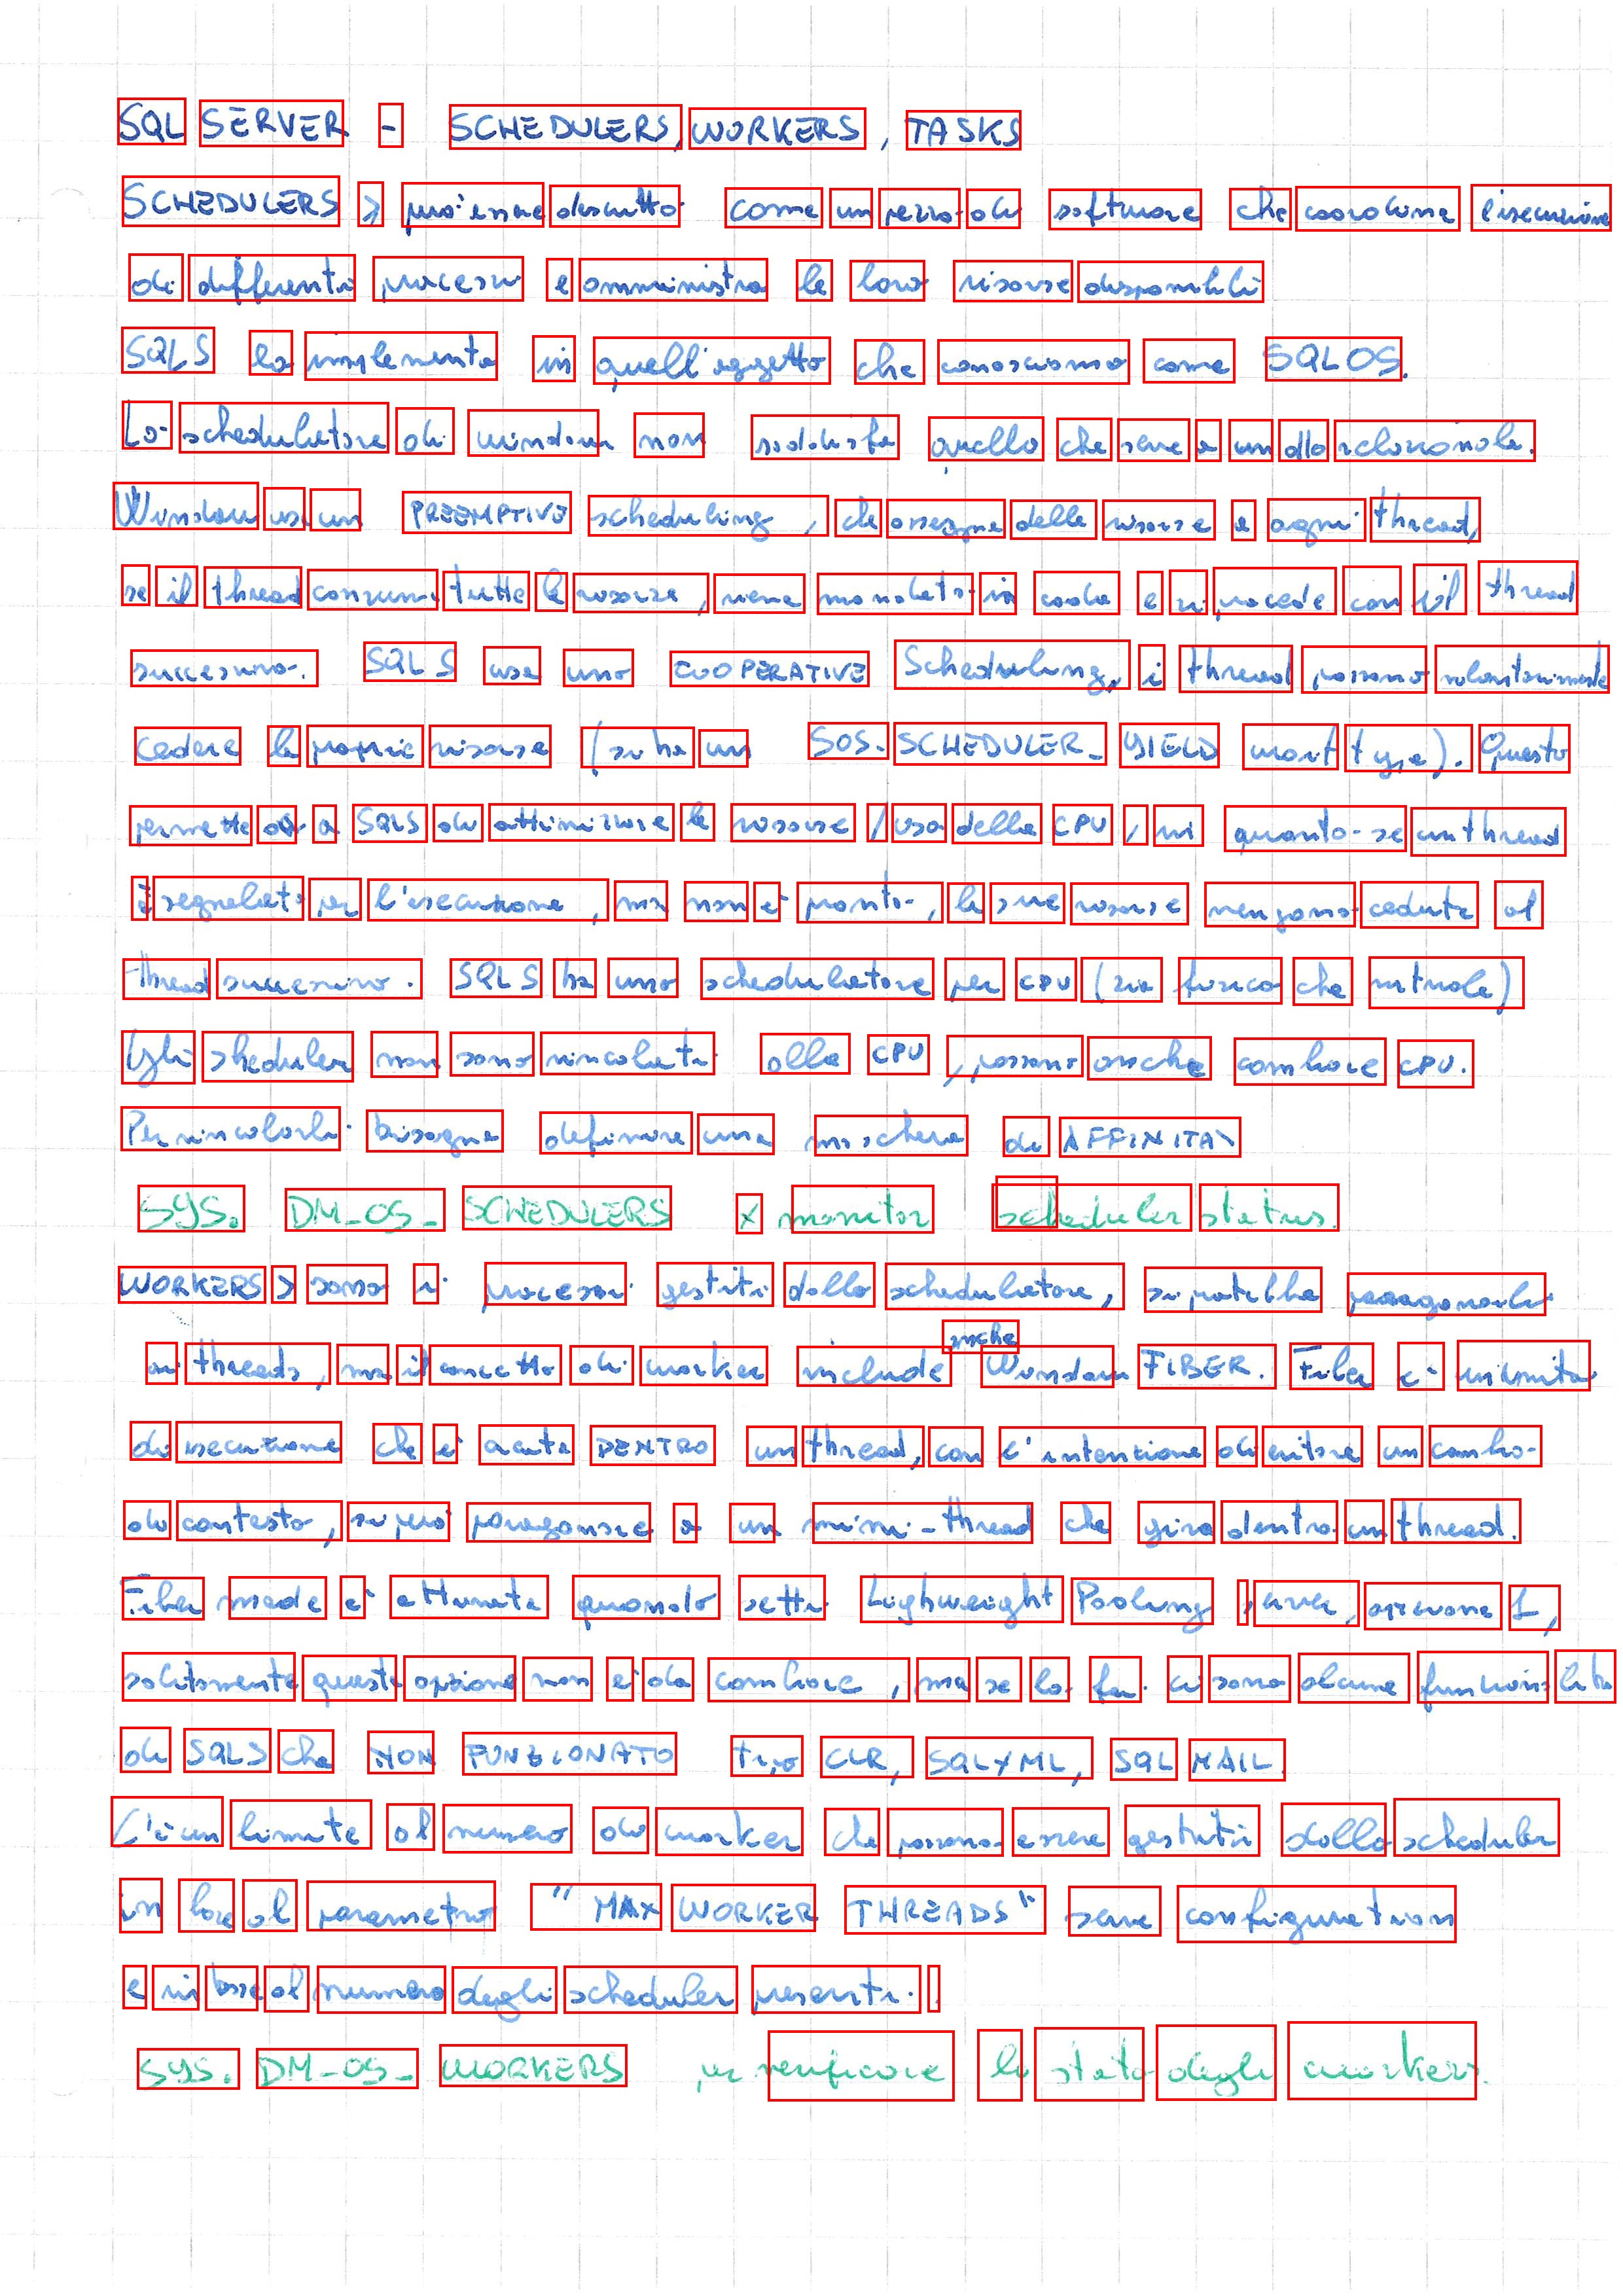 SQL SERVER - SCHEDULERS, WORKERS, TASKS
SCHEDULERS > può essere descritto come un pezzo di software che coordina l'esecuzione
di differenti processi e amministra le loro risorse disponibili
SQLS lo implementa in quell'oggetto che conosciamo come SQLOS.
Lo schedulatore di windows non soddisfa quello che serve a un db relazionale.
Windows usa un PREEMPTIVE scheduling, che assegna delle risorse a ogni thread,
se il thread consuma tutte le risorse, viene mandato in coda e si procede con il thread
successivo. SQLS usa uno COOPERATIVE Scheduling, i thread possono volontariamente
cedere le proprie risorse (si ha un SOS_SCHEDULER_YIELD wait type). Questo
permette a SQLS di ottimizzare le risorse / uso della CPU, in quanto se un thread
è segnalato per l'esecuzione, ma non è pronto, le sue risorse vengono cedute al
thread successivo. SQLS ha uno schedulatore per CPU (sia fisica che virtuale)
Gli sheduler non sono vincolati alla CPU, possono anche cambiare CPU.
Per vincolarli bisogna definire una maschera di AFFINITA'
SYS. DM_OS_SCHEDULERS x monitor scheduler status.
WORKERS > sono i processi gestiti dallo schedulatore, si potrebbe paragonarli
ai threads, ma il concetto di worker include anche Windows FIBER. Fiber è un'unità
di esecuzione che è avuta DENTRO un thread, con l'intenzione di evitare un cambio
di contesto, si può paragonare a un mini-thread che gira dentro un thread.
Fiber mode è attivata quando setti Lighweight Pooling, avra, opzione 1,
solitamente questa opzione non è da cambiare, ma se lo fai ci sono alcune funzionalità
di SQLS che NON FUNZIONATO tipo CLR, SQLXML, SQL MAIL.
C'è un limite al numero di worker che possono essere gestiti dallo scheduler
in base al parametro "MAX WORKER THREADS" server configuration
e in base al numero degli scheduler presenti.
SYS. DM_OS_WORKERS per verificare lo stato degli workers.